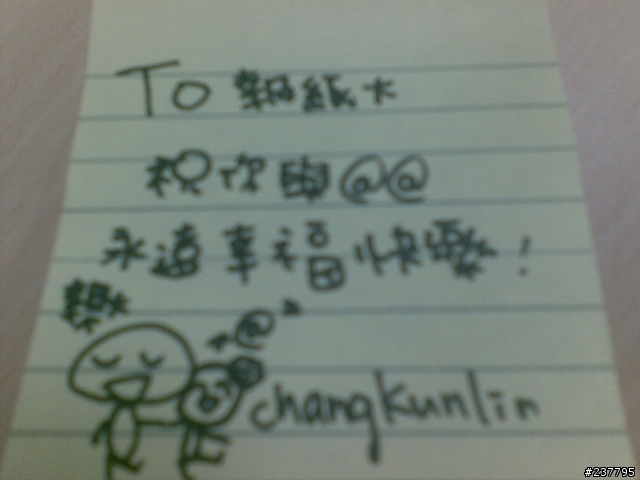 To 報紙大
祝你與@@
永遠幸福快樂!
樂
@
changkunlin
#237795